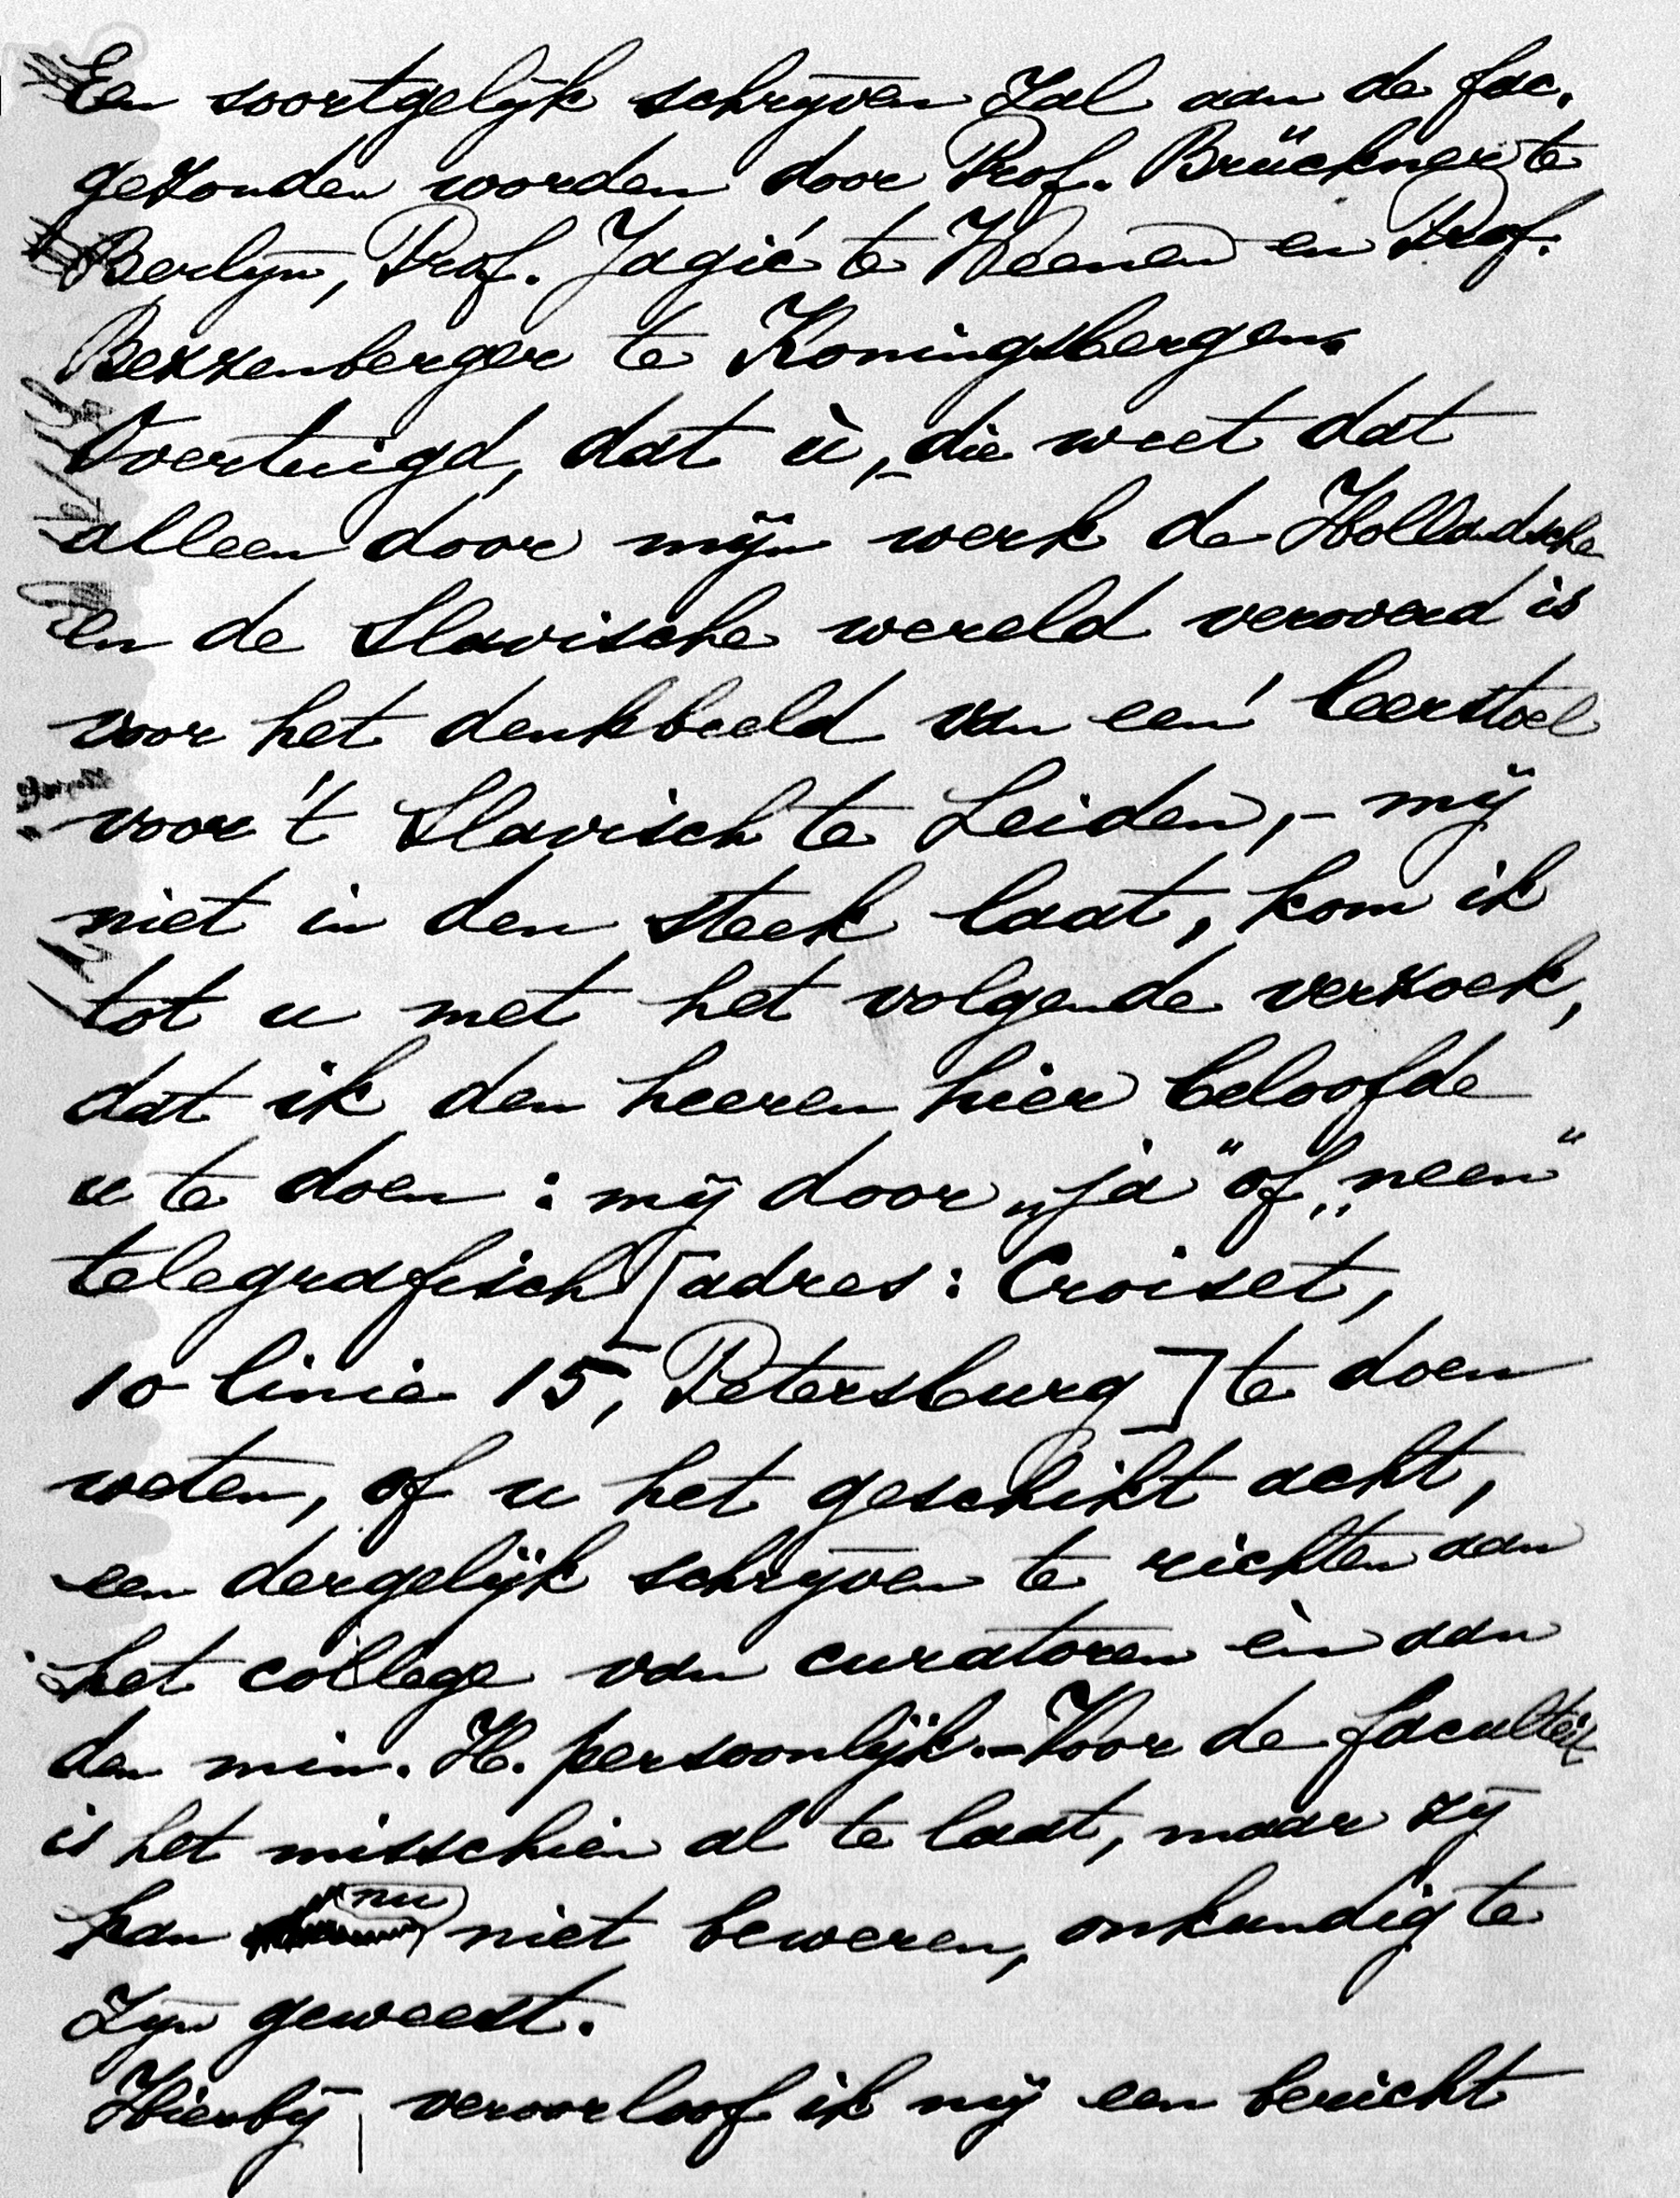 Een soortgelijk schrijven zal aan de fac.
gezonden worden door Prof. Brückner te
Berlijn, Prof. Jagić te Weenen en Prof.
Bezzenberger te Koningsbergen.
Overtuigd, dat ù, – die weet dat
alleen door mijn werk de Hollandsche
en de Slavische wereld veroverd is
voor het denkbeeld van een leerstoel
voor 't Slavisch te Leiden, – mij
niet in den steek laat, kom ik
tot u met het volgende verzoek,
dat ik den heeren hier beloofde
u te doen: mij door „ja" of „neen"
telegrafisch [adres: Croiset,
10 linie 15, Petersburg] te doen
weten, of u het geschikt acht,
een dergelijk schrijven te richten aan
het college van curatoren èn aan
den min. H. persoonlijk. – Voor de faculteit
is het misschien al te laat, maar zij
kan nu niet beweren, onkundig te
zijn geweest.
Hierbij veroorloof ik mij een bericht